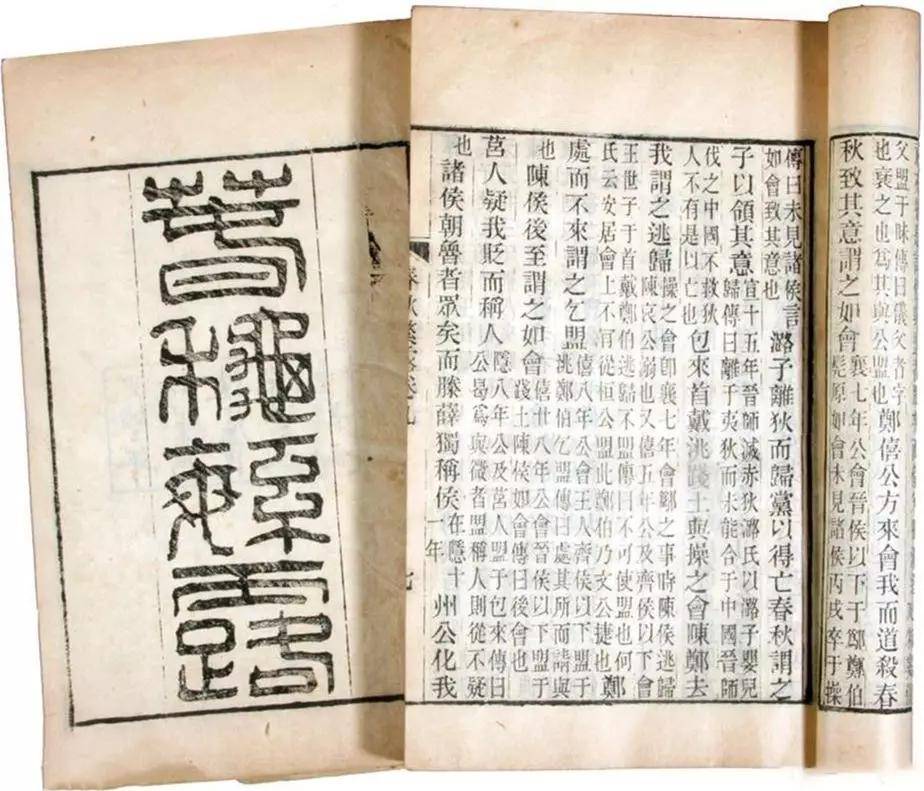 父盟于昧傳曰儀父者字
也襃之也爲其與公盟也
鄭僖公方來會我而道殺春
秋致其意謂之如會
襄七年公會晉侯以下于鄬鄭伯
髡原如會未見諸侯丙戌卒于操
傳曰未見諸侯言
如會致其意也
潞子離狄而歸黨以得亡春秋謂之
子以領其意
宣十五年晉師滅赤狄潞氏以潞子嬰兒
歸傳曰離于夷狄而未能合于中國晉師
伐之中國不救狄
人不有是以亡也
包來首戴洮踐土與操之會陳鄭去
我謂之逃歸
操之會卽襄七年會鄬之事時陳侯逃
歸陳哀公溺也又僖五年公及齊侯以下會
王世子于首戴鄭伯逃歸不盟傳曰不可使盟也何
氏云安居會上不肯從桓公盟此鄭伯乃文公捷也
鄭
處而不來謂之乞盟
僖八年公會王人齊侯以下盟于
洮鄭伯乞盟傳曰處其所而請與
也
陳侯後至謂之如會
僖廿八年公會晉侯以下盟于
踐土陳侯如會傳曰後會也
莒人疑我貶而稱人
隱八年公及莒人盟于包來傳曰
公曷爲與微者盟稱人則從不疑
也
諸侯朝魯者眾矣而滕薛獨稱侯
在隱十
一年
州公化我
春秋繁露卷九
七
春秋繁露